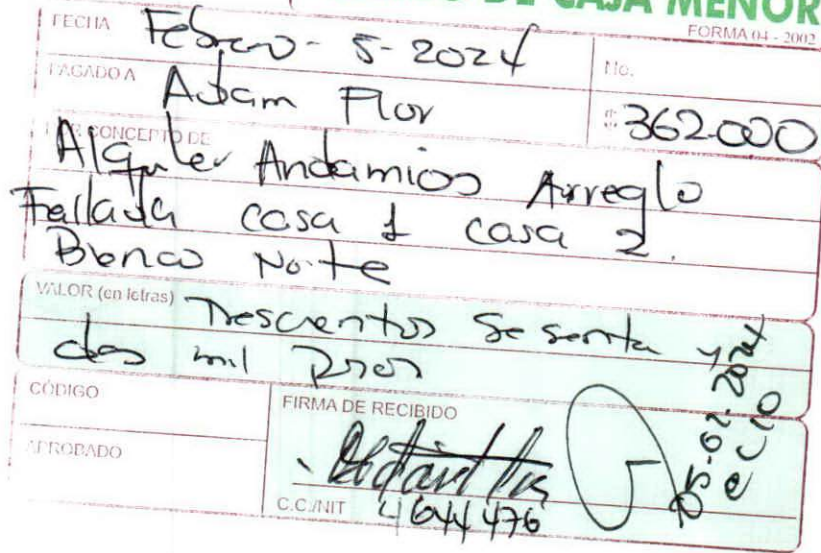 DE CAJA MENOR
FORMA 04 - 2002
FECHA Febrero - 5 - 2024
No.
PAGADO A Adam Flor
$ 362.000
POR CONCEPTO DE
Alquiler Andamios Arreglo
casa 1 casa 2.
Norte
VALOR (en letras) Trescientos Sesenta y
dos mil Pesos
CÓDIGO
FIRMA DE RECIBIDO
APROBADO
C.C./NIT 4644476
05-02-2024